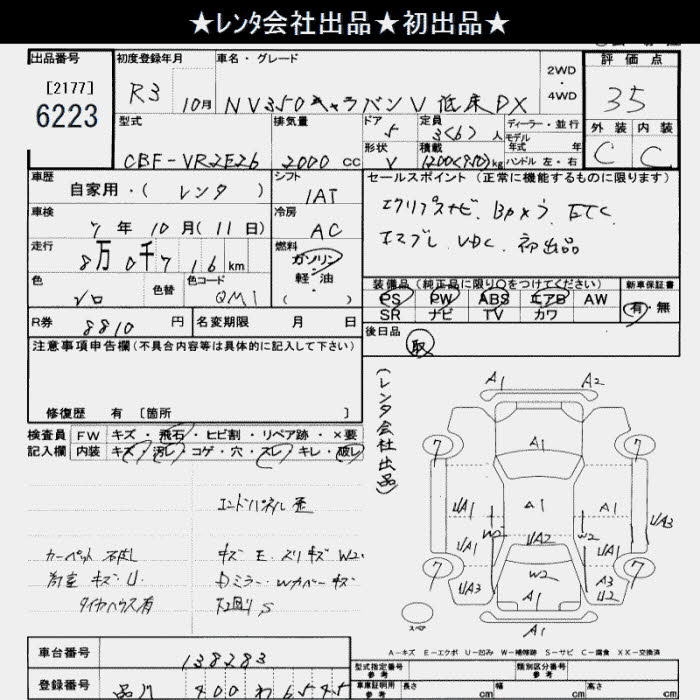 ★レンタ会社出品★初出品★
出品番号
[2177]
6223
初度登録年月
R3 10月
車名・グレード
NV350キャラバンV 低床DX
2WD
・
4WD
評価点
35
外装 内装
C C
型式
CBF-VR2E26
排気量
2000 cc
ドア
5
定員
3(6)人
形状
V
積載
1200(950)kg
ディーラー・並行
モデル
年式 年
ハンドル 左・右
車歴
自家用・(レンタ)
シフト
IAT
車検
7年10月(11日)
冷房
AC
走行
8万0千716km
燃料
ガソリン
軽・油
(・)
色
シロ
色替
色コード
QM1
R券
8810円
名変期限 月 日
セールスポイント(正常に機能するものに限ります)
エクリプスナビ. Bカメラ. ETC.
エマブレ. VDC. 初出品
装備品(純正品に限り○をつけてください)
PS PW ABS エアB AW
SR ナビ TV カワ
新車保証書
有・無
後日品
取
注意事項申告欄(不具合内容等は具体的に記入して下さい)
修復歴 有 [箇所 ]
検査員
記入欄
FW キズ・飛石・ヒビ割・リペア跡・×要
内装 キズ・汚レ・コゲ・穴・スレ・キレ・破レ
エンドパネル歪
カーペット
キズ E. スリキズ W2.
荷室キズU.
タイヤハウス有
下回りS
(レンタ会社出品)
A1 A2
A1
7 7
A1
UA1 A1
UA3
W2 UA2 W2
UA1 UA1
7 7
W2
UA3 A3
U2
A1
A1
スペア
A-キズ E-エクボ U-凹み W-補修跡 S-サビ C-腐食 XX-交換済
車台番号
138283
登録番号
品川 400 わ 6545
型式指定番号
参考
類別区分番号
参考
車庫証明用
参考
長さ cm 幅 cm 高さ cm